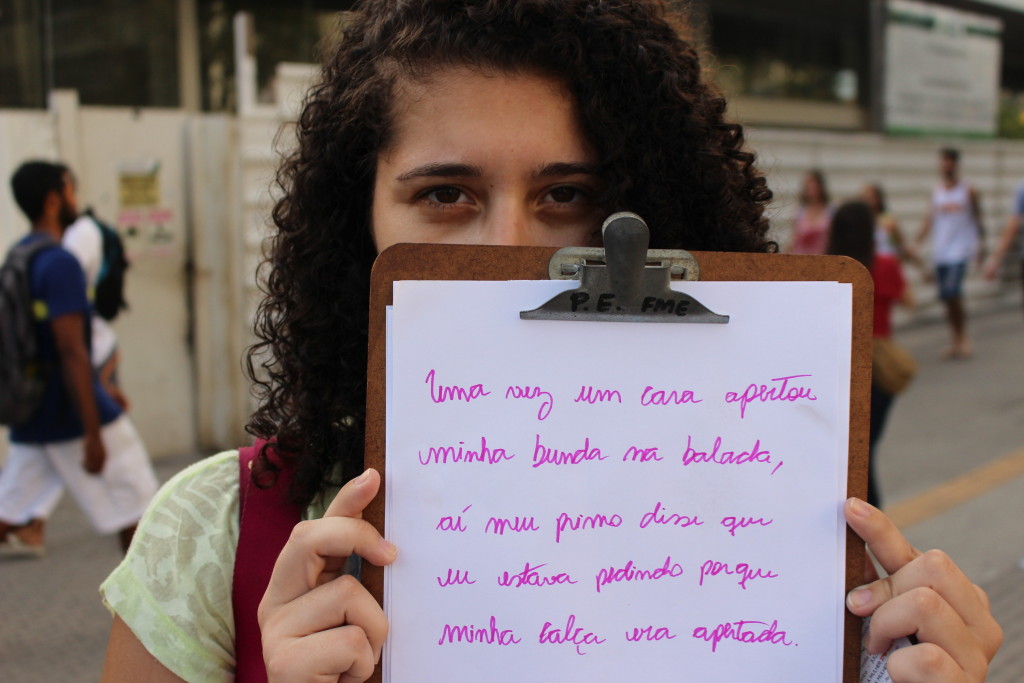 P.E. FME
Uma vez um cara apertou
minha bunda na balada,
aí meu primo disse que
eu estava pedindo porque
minha calça era apertada.